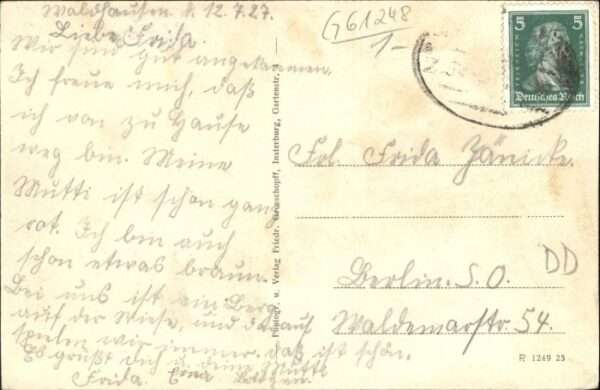 Waldhausen d. 12.7.27.
Liebe Frida.
Wir sind gut angekommen.
Ich freue mich, daß
ich von zu Hause
weg bin. Meine
Mutti ist schon ganz
rot. Ich bin auch
schon etwas braun.
Bei uns ist ein Berg
auf der Wiese, und darauf
spielen wir immer. daß ist schön.
Es grüßt Dich u. deine Mutti
Frida
G61248
1-
5 5
Deutsches Reich
Frl. Frida Jänicke.
Berlin. S.O.
Waldemarstr. 54.
DD
Photogr. u. Verlag Friedr. Insterburg, Gartenstr.
R 1249 25